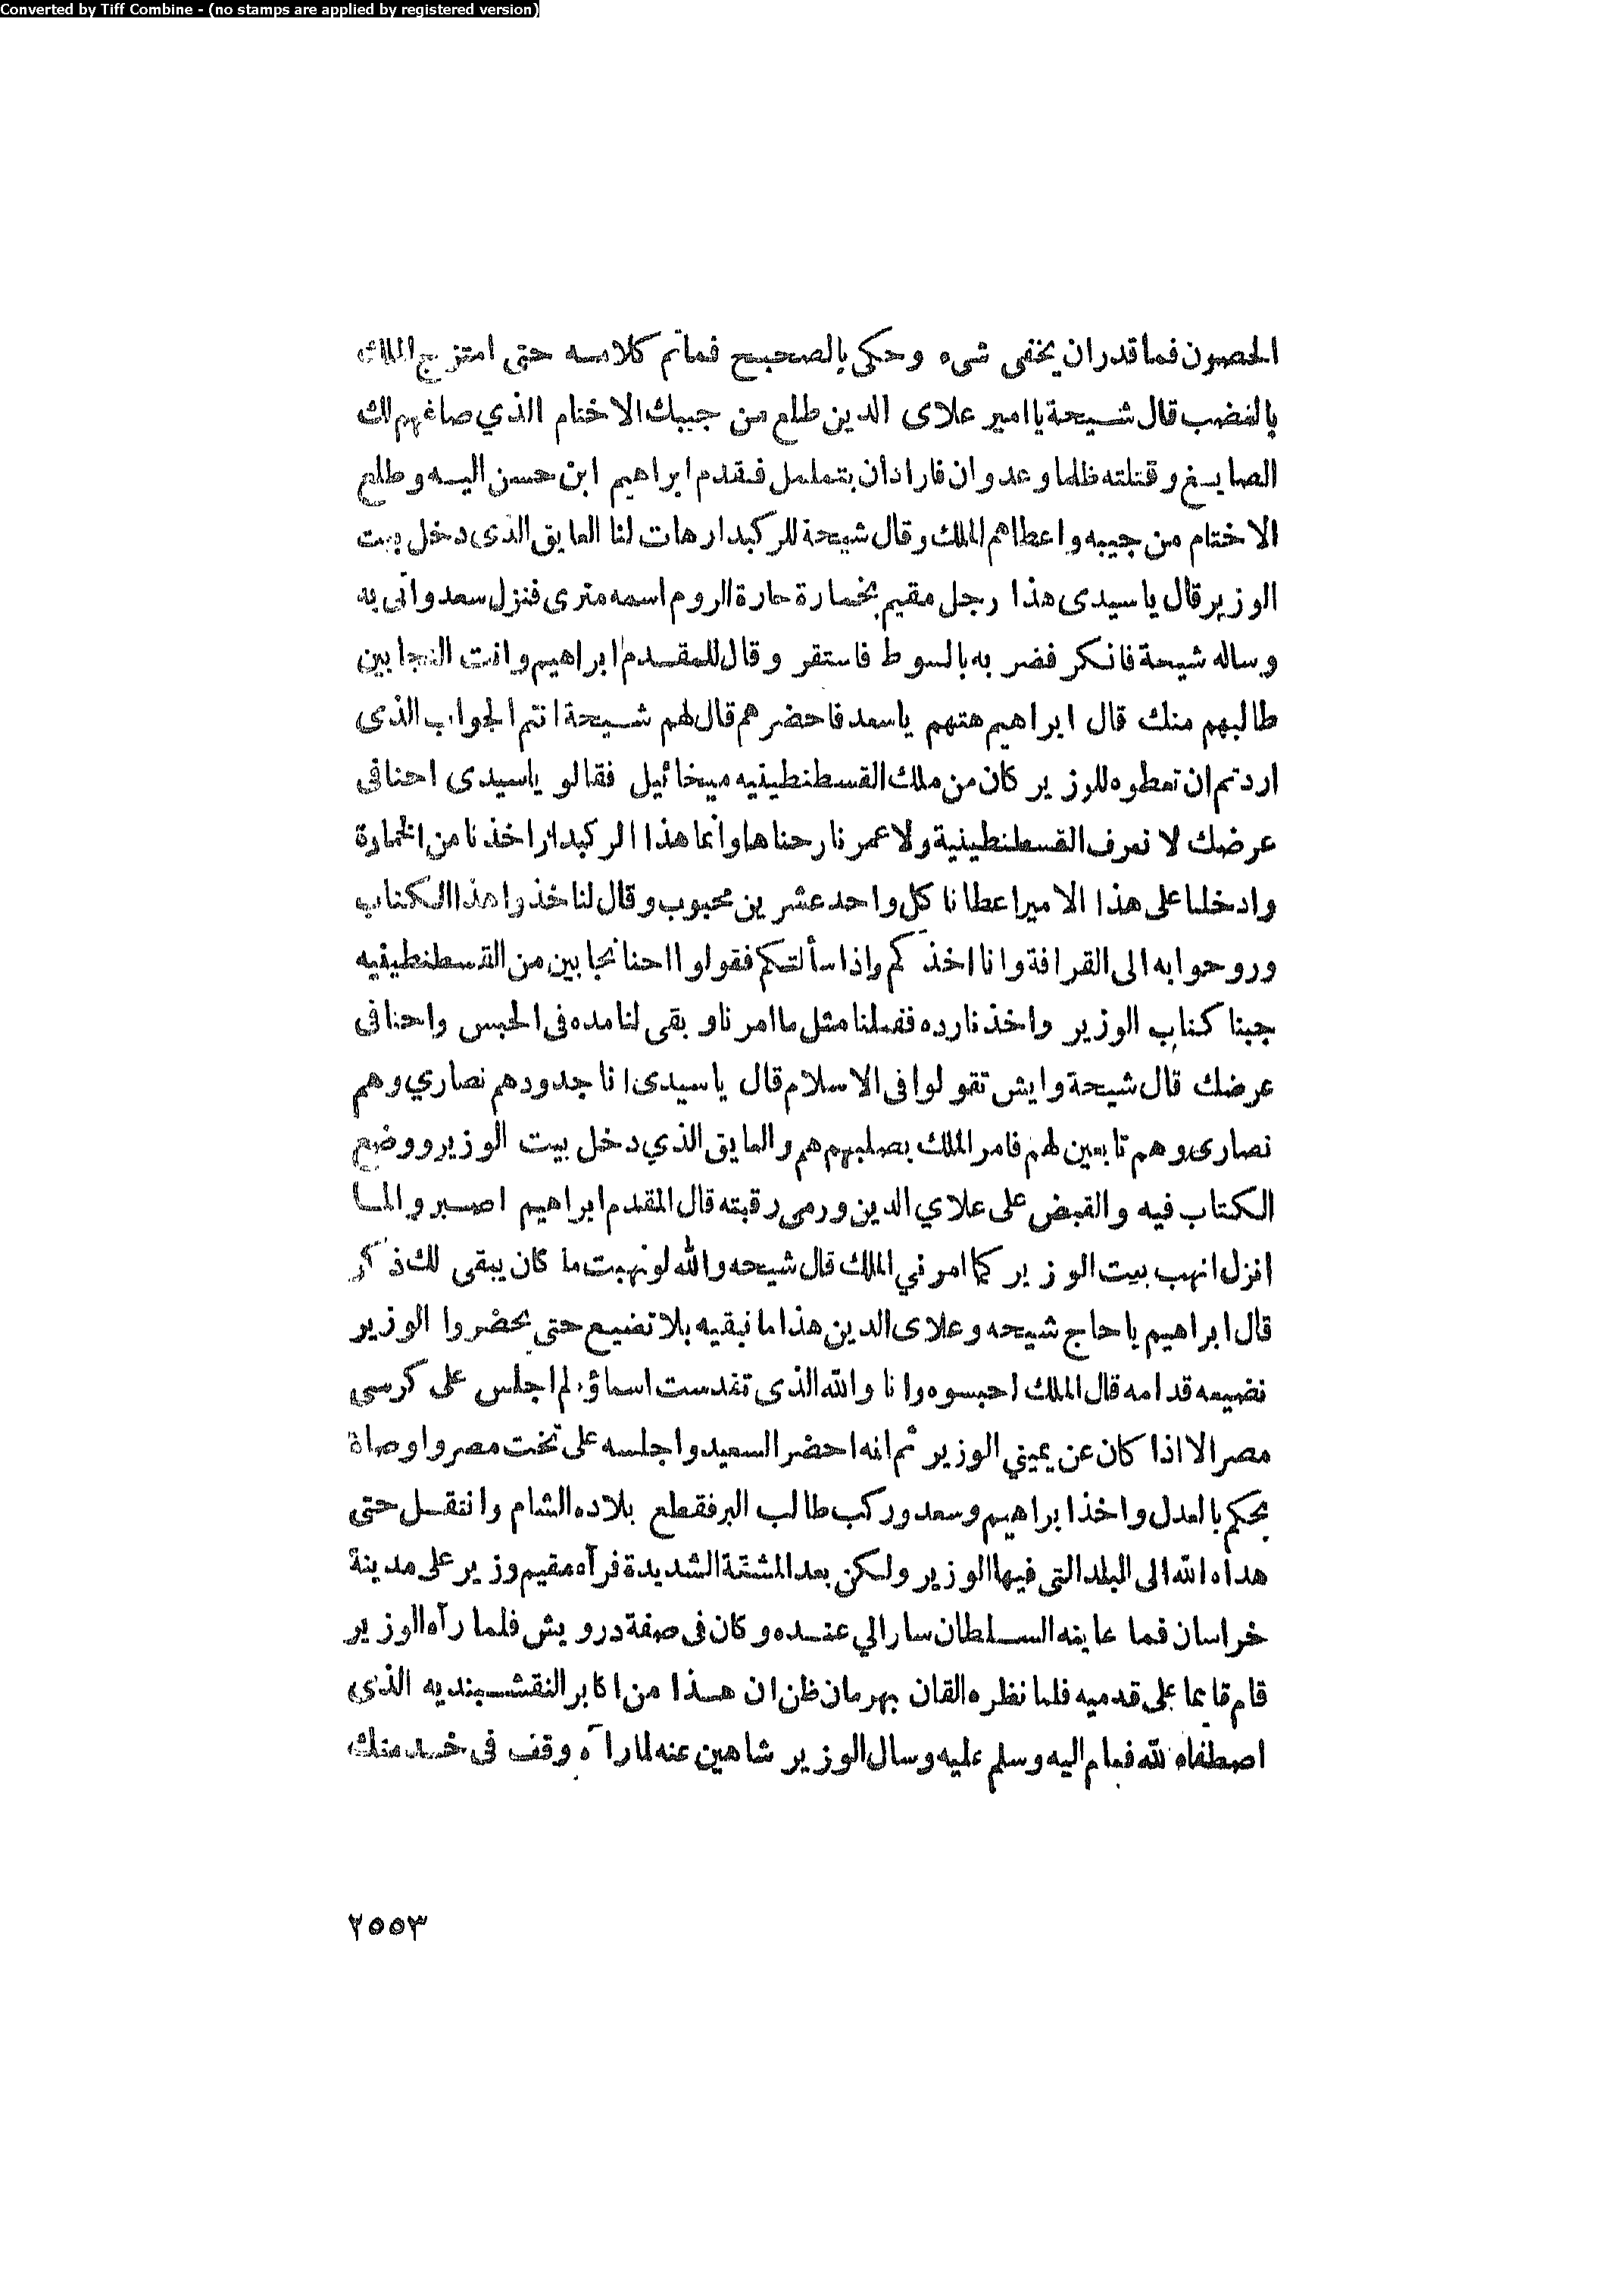 Converted by Tiff Combine - (no stamps are applied by registered version)
الحصون فما قدران يخفى شىء وحكى بالصحيح فما تم كلامه حتى امتزج الملك
بالغضب قال شيحة يا امير علاى الدين طلع من جيبك الاختام الذي صاغهم لك
الصايغ وقتلته ظلما وعدوان فارادان يتململ فتقدم ابراهيم ابن حسن اليه وطلع
الاختام من جيبه واعطاهم الملك وقال شيحة للركبدار هات لنا العايق الذى دخل بيت
الوزير قال ياسيدى هذا رجل مقيم بخمارة حارة الروم اسمه مترى فنزل سعد وأتى به
وساله شيحة فانكر فضر به بالسوط فاستقر وقال للمقدم ابراهيم وانت النجابين
طالبهم منك قال ابراهيم هتهم ياسعد فاحضرهم قال لهم شيحة انتم الجواب الذى
اردتم ان تعطوه للوزير كان من ملك القسطنطينيه ميخائيل فقالو ياسيدى احنا فى
عرضك لا نعرف القسطنطينية ولا عمرنا رحناها وانما هذا الركبدار اخذنا من الخمارة
وادخلنا على هذا الامير اعطانا كل واحد عشرين محبوب وقال لنا خذوا هذا الكتاب
وروحوا به الى القرافة وانا اخذكم واذا سألتكم فقولوا احنا نجابين من القسطنطينيه
جبنا كتاب الوزير واخذنا رده ففعلنا مثل ما امرنا و بقى لنا مده فى الحبس واحنا فى
عرضك قال شيحة وايش تقولوا فى الاسلام قال ياسيدى انا جدودهم نصاري وهم
نصارى وهم تابعين لهم فامر الملك بصلبهم هم والعايق الذي دخل بيت الوزير ووضع
الكتاب فيه والقبض على علاي الدين ورمى رقبته قال المقدم ابراهيم اصبر والما
انزل انهب بيت الوزير كما امرني الملك قال شيحه والله لو نهبت ما كان يبقى لك ذكر
قال ابراهيم يا حاج شيحه وعلاى الدين هذا ما نبقيه بلا تضييع حتى يحضروا الوزير
نضيعه قدامه قال الملك احبسوه وانا والله الذى تقدست اسماؤه لم اجلس على كرسى
مصر الا اذا كان عن يميني الوزير ثم انه احضر السعيد واجلسه على تخت مصر واوصاة
بحكم بالعدل واخذ ابراهيم وسعد وركب طالب البر فقطع بلاده الشام وانتقل حتى
هداه الله الى البلد التى فيها الوزير ولكن بعد المشقة الشديدة فرآه مقيم وزير على مدينة
خراسان فما عاينه السلطان سار الي عنده وكان فى صفة درويش فلما رآه الوزير
قام قايما على قدميه فلما نظره القان بهرمان ظن ان هذا من اكابر النقشبنديه الذى
اصطفاه لله فقام اليه وسلم عليه وسال الوزير شاهين عنه لما رآه وقف فى خدمتك
٢٥٥٣